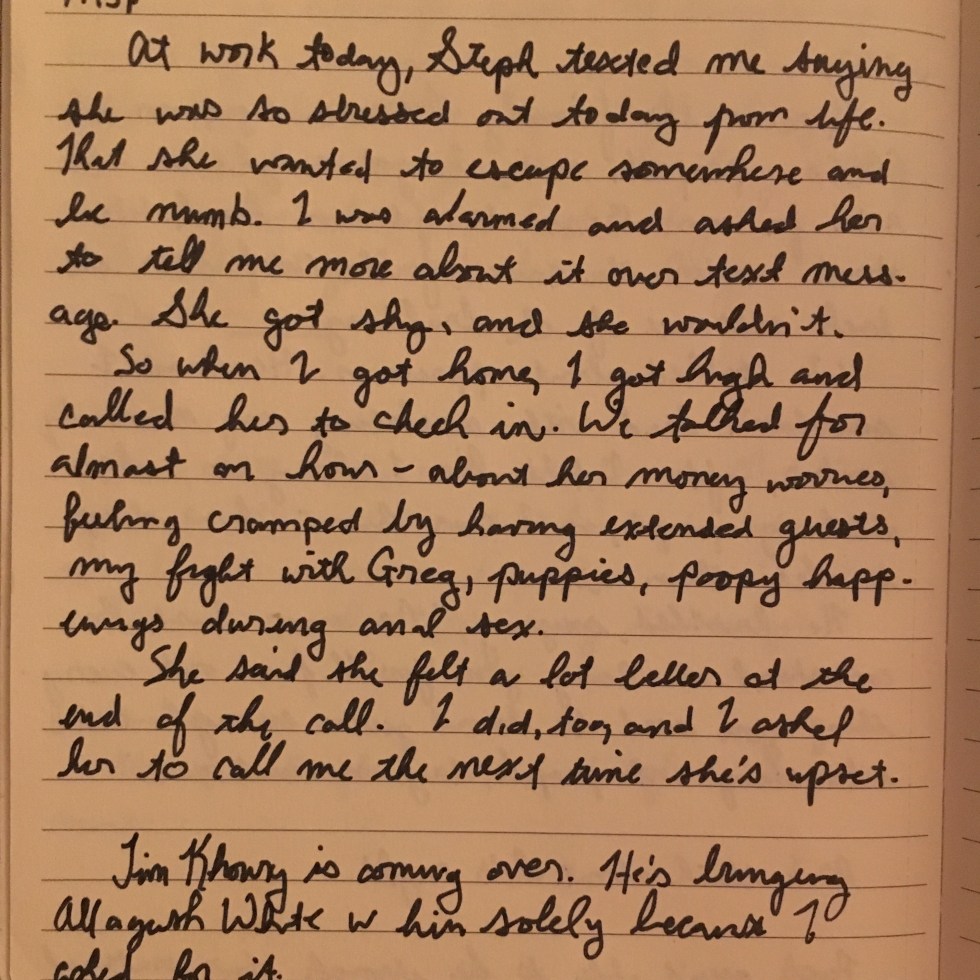 At work today, Steph texted me saying
she was so stressed out today from life.
That she wanted to escape somewhere and
be numb. I was alarmed and asked her
to tell me more about it over text mess-
age. She got shy, and she wouldn't.
So when I got home, I got high and
called her to check in. We talked for
almost an hour - about her money worries,
feeling cramped by having extended guests,
my fight with Greg, puppies, poopy happ-
enings during anal sex.
She said she felt a lot better at the
end of the call. I did, too, and I asked
her to call me the next time she's upset.
Jim Khoury is coming over. He's bringing
Allagash White w him solely because I
asked for it.